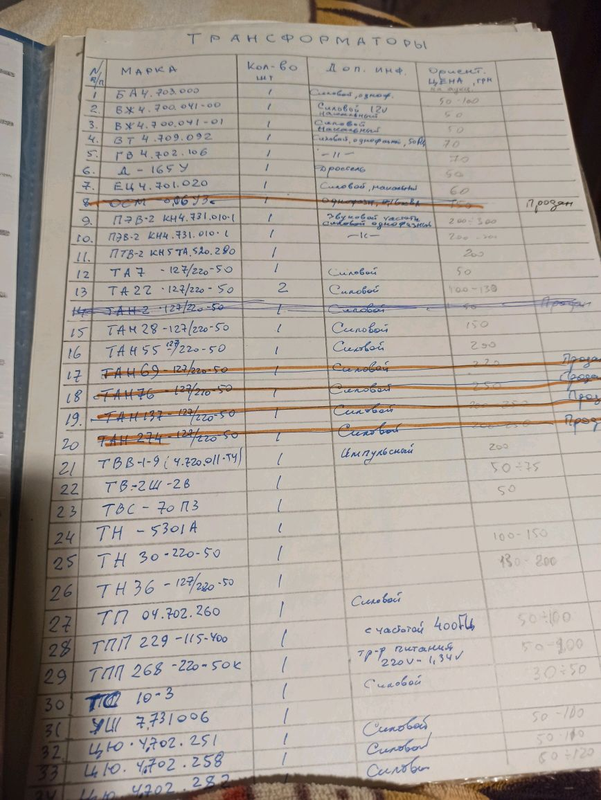 ТРАНСФОРМАТОРЫ
N п/п МАРКА Кол-во шт Доп. инф. Ориент. ЦЕНА, грн
1 БА4.709.000 1 Силовой, однофаз. 50-100
2 ВЖ4.700.041-00 1 Силовой 12v накальный 50
3. ВЖ4.700.041-01 1 Силовой накальный 50
4. ВТ 4.709.092 1 Силовой, однофазный, 50Гц 70
5. ГВ 4.702.106 1 -11- 70
6. Д - 165У 1 Дроссель 50
7. ЕЦ4.701.020 1 Силовой, накальный 60
8 ОСМ 1 Продан
9. ПЭВ-2 КН4.731.010-1 1 Звуковой частоты Силовой однофазный 200-300
10. ПЭВ-2 КН4.731.010-1 1 -11-
11. ПТВ-2 КН5ТА.520.280 1 200
12 ТА7 -127/220-50 1 Силовой 50
13 ТА22 -127/220-50 2 Силовой 100-130
14. ТАН-2 -127/220-50 1 Силовой Продан
15 ТАН28 -127/220-50 1 Силовой 150
16 ТАН55 127/220-50 1 Силовой 200
17 ТАН69 -127/220-50 1 Силовой Продан
18 ТАН76 -127/220-50 1 Силовой 250 Продан
19. ТАН137 -127/220-50 1 Силовой Прод
20 ТАН 274 -127/220-50 1 Силовой Прод
21 ТВВ-1-9 (4.720.011-ТУ) 1 Импульсный 200
22 ТВ-2Ш-2В 1 50÷75
23 ТВС - 70П3 1 50
24 ТН - 5301А 1
25 ТН 30-220-50 1 100-150
26 ТН36 -127/220-50 1 150-200
27 ТП 04.702.260 1 Силовой
28 ТПП 229 -115-400 1 с частотой 400Гц 50÷100
29 ТПП 268 -220-50к 1 тр-р питания 220v - 1,34v
30 10-3 1 Силовой 30÷50
31 УШ 7.731006 1
32 ЦЮ.4.702.251 1 Силовой 50-100
33 ЦЮ.4.702.258 1 Силовой 50-100
34 ЦЮ 4702.287 1 Силовой 50÷120